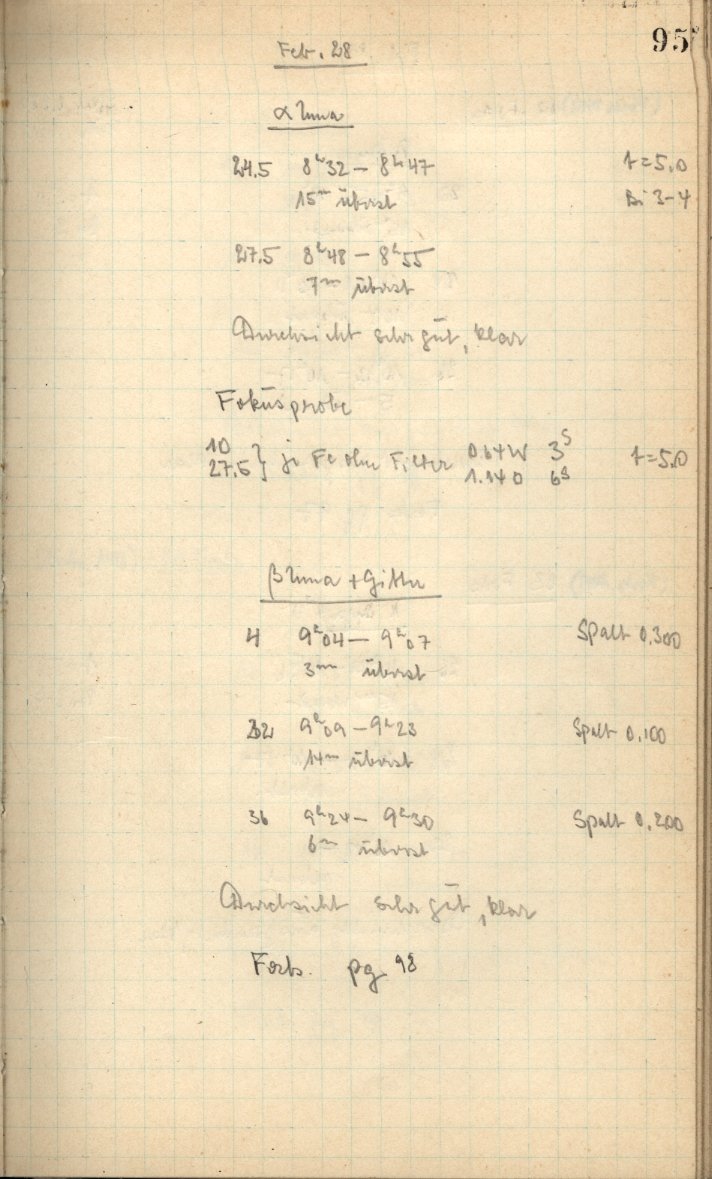 95
Feb. 28
α Luna
24.5 8ʰ32 – 8ʰ47 t=5.0
15ᵐ überst Bi 3-4
27.5 8ʰ48 – 8ʰ55
7ᵐ überst
Durchsicht sehr gut, klar
Fokusprobe
10
27.5 } je Fe ohne Filter 0.64W 3ˢ t=5.0
1.140 6ˢ
β Luna + Gitter
4 9ʰ04 – 9ʰ07 Spalt 0.300
3ᵐ überst
9ʰ09 – 9ʰ23 Spalt 0.100
14ᵐ überst
36 9ʰ24 – 9ʰ30 Spalt 0.200
6ᵐ überst
Durchsicht sehr gut, klar
Forts. pg 98